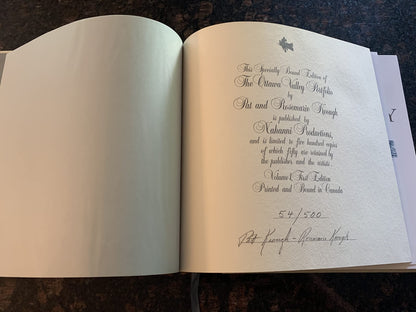 This Specially Bound Edition of
The Ottawa Valley Portfolio
by
Pat and Rosemarie Keough
is published by
Nahanni Productions,
and is limited to five hundred copies
of which fifty are retained by
the publisher and the artists.
Volume I, First Edition
Printed and Bound in Canada
54/500
Pat Keough - Rosemarie Keough
Y